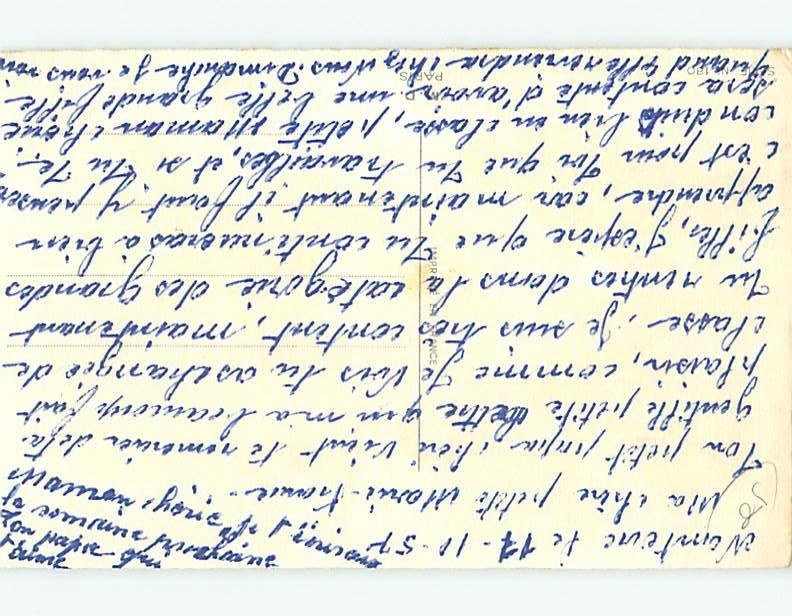 Nanterre le 17-10-57
Ma chère petite Marie-France.
Ton petit papa chéri vient te remercier de ta
gentille petite lettre qui m'a beaucoup fait
plaisir, comme je vois tu as changée de
classe, je suis très content, maintenant
tu rentres dans la catégorie des grandes
filles, j'espère que tu continueras à bien
apprendre, car maintenant il faut y penser
c'est pour toi que tu travailles, et si tu te
conduis bien en classe, petite maman chérie
sera contente d'avoir une belle grande fille
quand elle reviendra chez vous. Dimanche je vous
IMPRIMÉ EN FRANCE
PARIS
58